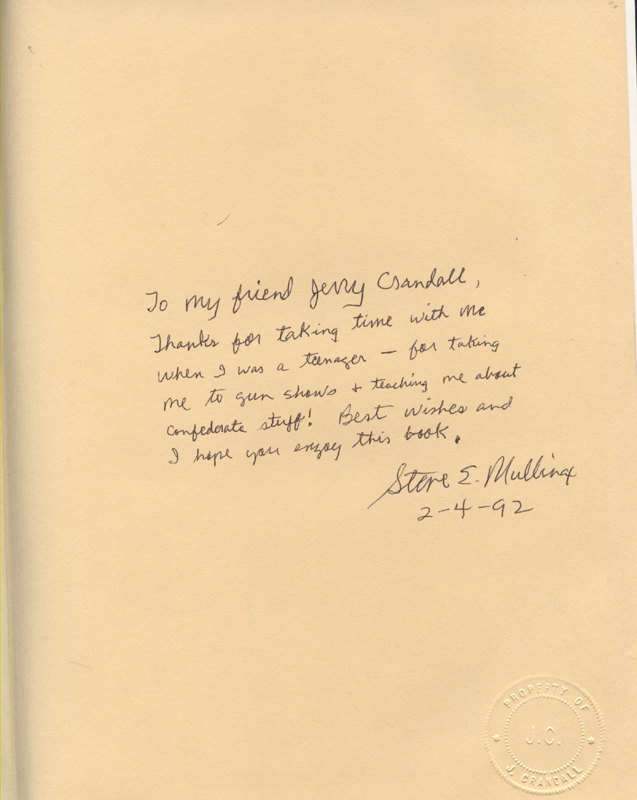 To my friend Jerry Crandall,
Thanks for taking time with me
when I was a teenager — for taking
me to gun shows + teaching me about
Confederate stuff! Best wishes and
I hope you enjoy this book.
Steve E. Mullinax
2-4-92
PROPERTY OF
J.C.
J. CRANDALL